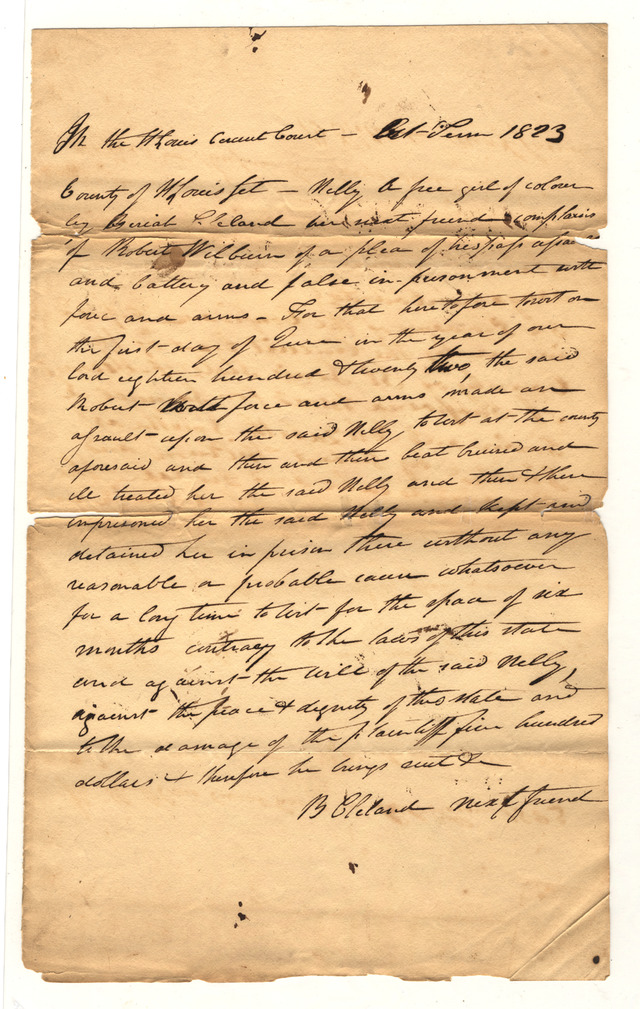 In the St Louis Circuit Court – Oct Term 1823
County of St Louis Set – Nelly A free girl of colour
by Beriah Cleland her next friend complains
of Robert Wilburn of a plea of trespass assault
and battery and false in-prisonment with
force and arms – For that heretofore towit on
the first day of June in the year of our
lord eighteen hundred & twenty two, the said
Robert with force and arms made an
assault upon the said Nelly, towit at the county
aforesaid and then and there beat bruised and
ill treated her the said Nelly and then & there
imprisoned her the said Nelly and kept and
detained her in prison there without any
reasonable or probable cause whatsoever
for a long time towit for the space of six
months contrary to the laws of this state
and against the will of the said Nelly,
against the peace & dignity of this state and
to the damage of the plaintiff five hundred
dollars & therefore he brings suit &c
B Cleland next friend